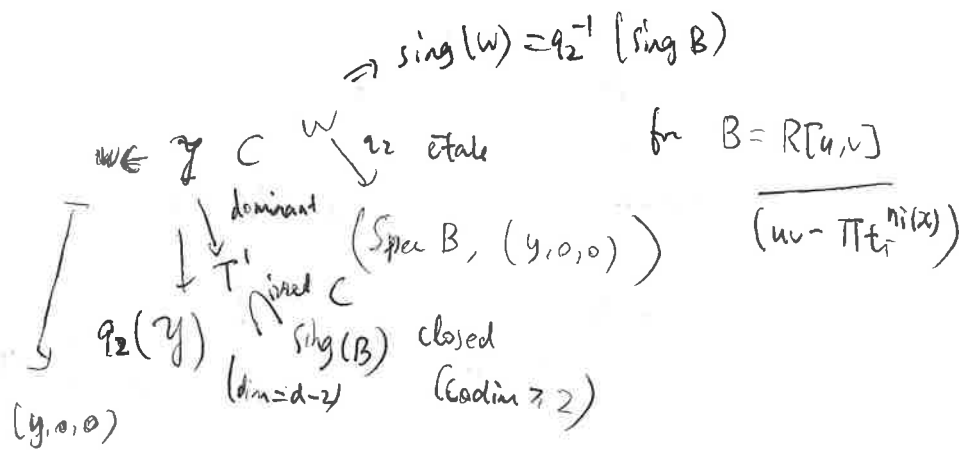 ⇒ sing(W) = q₂⁻¹ (Sing B)
w ∈ Y ⊂ W
q₂ etale
for B = R[u,v] / (uv - Πtᵢ^{nᵢ(x)})
dominant
(Spec B, (y,0,0))
T' irred ⊂
q₂(Y) Sing(B) closed
(dim = d-2) (codim ≥ 2)
(y,0,0)